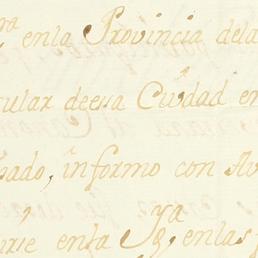 ra en la Provincia dela
cular deesa Ciudad en
pado, informo con Au
en la Yga, en las